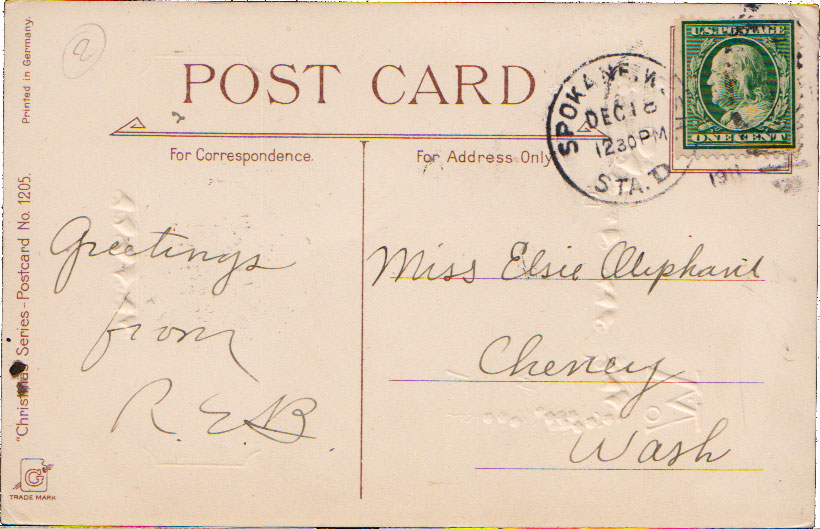 2
POST CARD
For Correspondence.
For Address Only
Printed in Germany.
"Christmas" Series - Postcard No. 1205.
G
TRADE MARK
U.S. POSTAGE
ONE CENT
SPOKANE, WASH
DEC 18
1230 PM
1911
STA. D
Greetings
from
R. E. B.
Miss Elsie Oliphant
Cheney
Wash